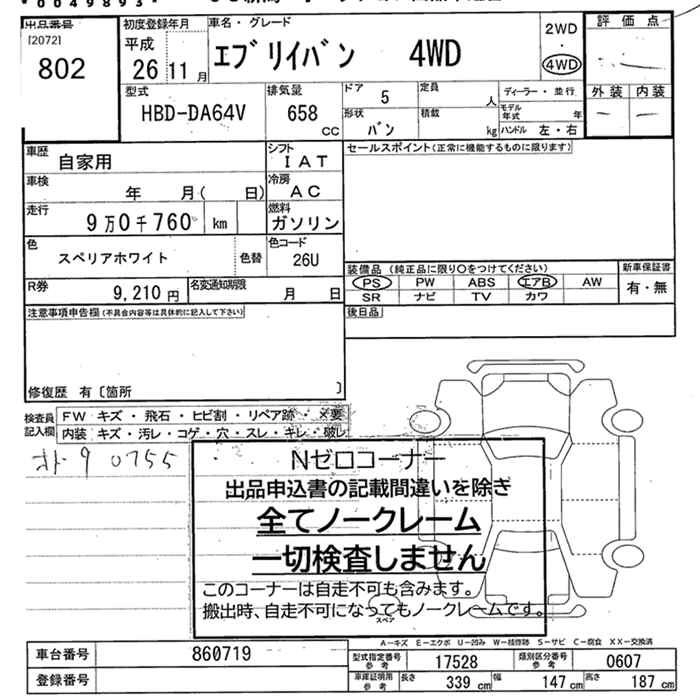 *0049893*
出品番号
[2072]
802
初度登録年月
平成
26 11 月
車名・グレード
エブリイバン 4WD
2WD
・
4WD
評価点
外装 内装
型式
HBD-DA64V
排気量
658
CC
ドア 5
形状
バン
定員
人
積載
kg
ディーラー・並行
モデル
年式 年
ハンドル 左・右
車歴
自家用
シフト
IAT
車検
年 月( 日)
冷房
AC
走行
9万0千760 km
燃料
ガソリン
色
スペリアホワイト
色替
色コード
26U
R券
9,210 円
名変通知期限
月 日
セールスポイント(正常に機能するものに限ります)
装備品 (純正品に限り○をつけてください)
PS PW ABS エアB AW
SR ナビ TV カワ
新車保証書
有・無
後日品
注意事項申告欄(不具合内容等は具体的に記入して下さい)
修復歴 有〔箇所 〕
検査員
記入欄
FW キズ・飛石・ヒビ割・リペア跡・×要
内装 キズ・汚レ・コゲ・穴・スレ・キレ・破レ
オト 9 0755
Nゼロコーナー
出品申込書の記載間違いを除き
全てノークレーム
一切検査しません
このコーナーは自走不可も含みます。
搬出時、自走不可になってもノークレームです。
スペア
A-キズ E-エクボ U-凹み W-補修跡 S-サビ C-腐食 XX-交換済
車台番号 860719
登録番号
型式指定番号
参考
17528
類別区分番号
参考
0607
車庫証明用
参考
長さ 339 cm 幅 147 cm 高さ 187 cm